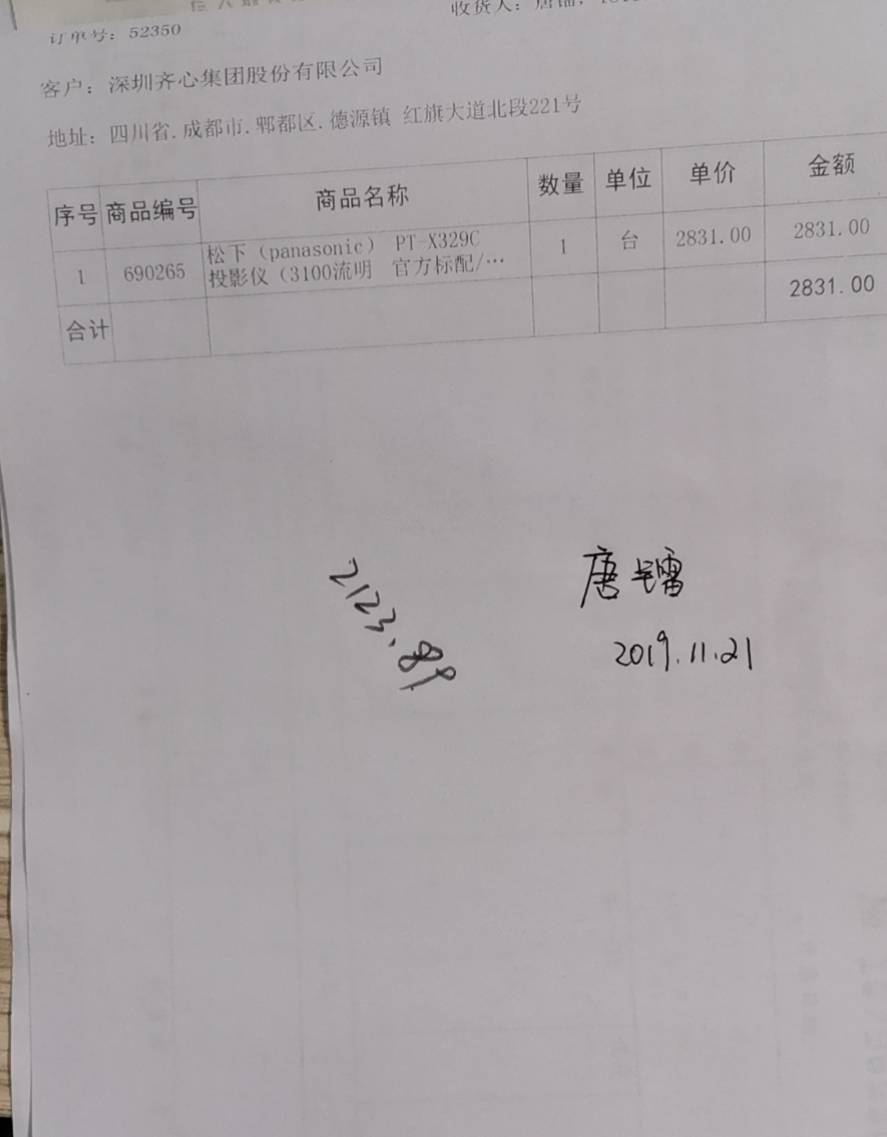 订单号：52350
收货人：唐镭，
客户：深圳齐心集团股份有限公司
地址：四川省.成都市.郫都区.德源镇 红旗大道北段221号
序号 商品编号 商品名称 数量 单位 单价 金额
1 690265 松下（panasonic） PT-X329C 1 台 2831.00 2831.00
投影仪（3100流明 官方标配/…
合计 2831.00
唐镭
2123.89
2019.11.21